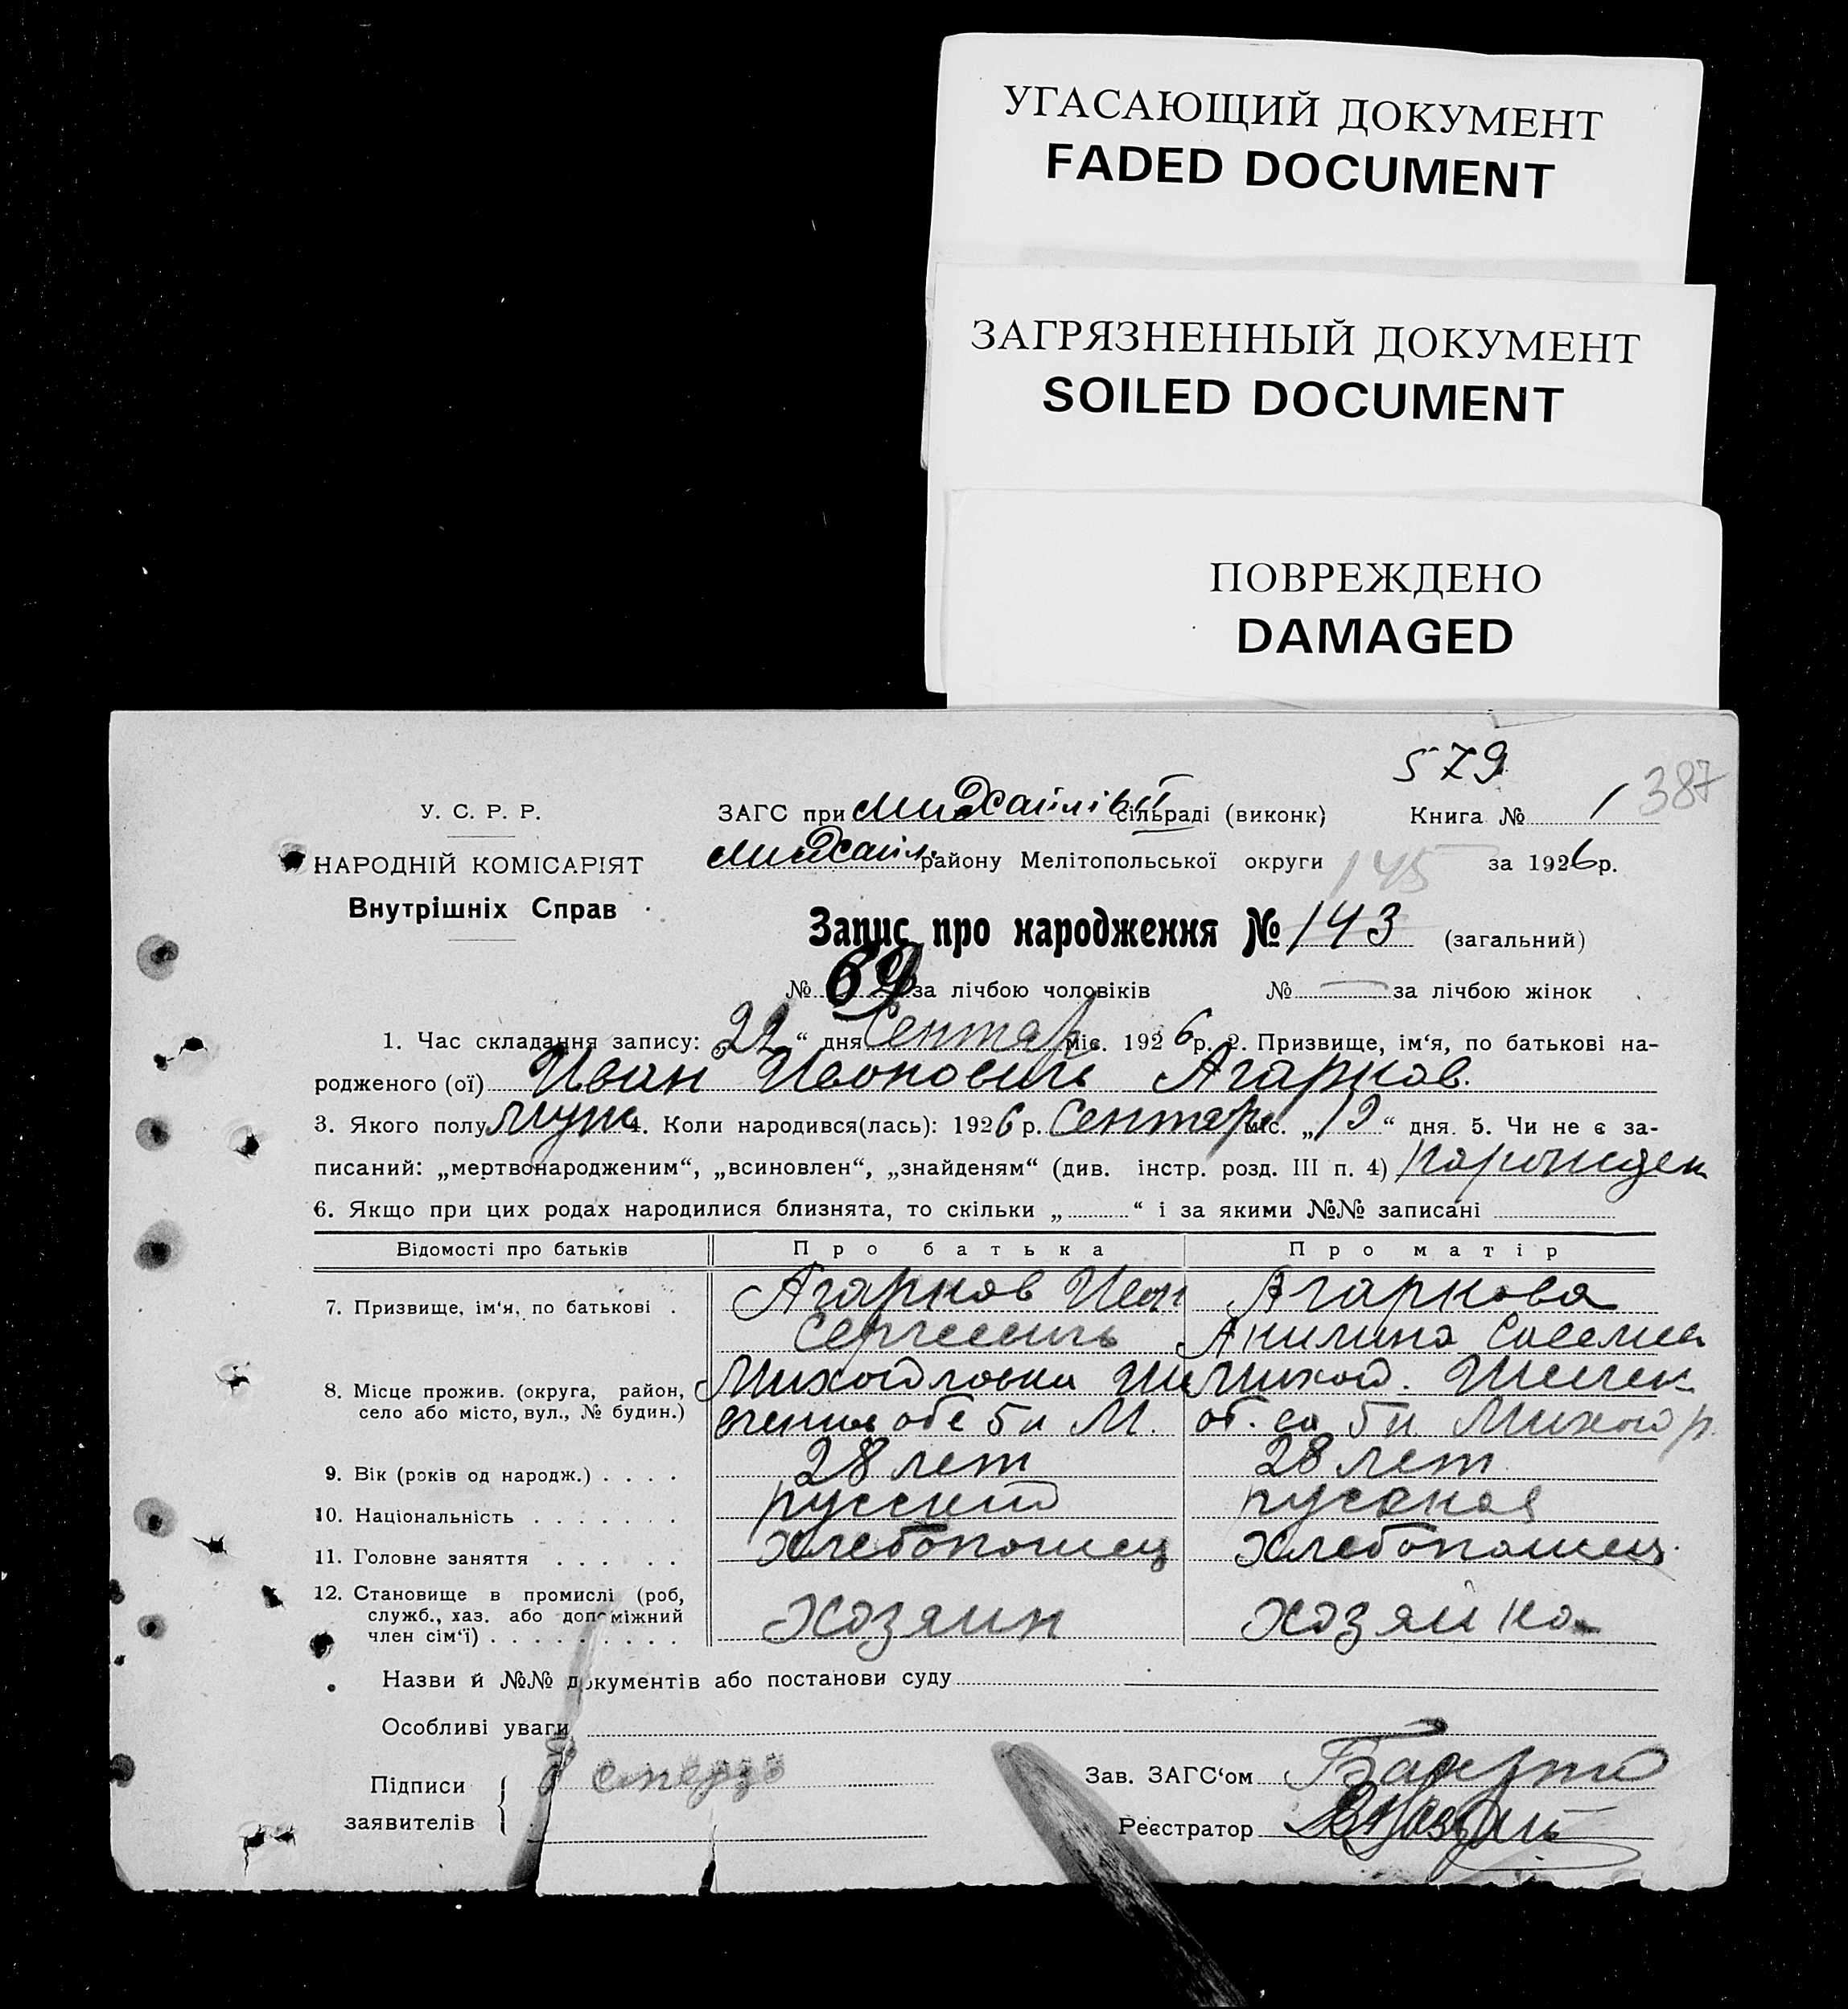 УГАСАЮЩИЙ ДОКУМЕНТ
FADED DOCUMENT
ЗАГРЯЗНЕННЫЙ ДОКУМЕНТ
SOILED DOCUMENT
ПОВРЕЖДЕНО
DAMAGED
579
387
У. С. Р. Р.
ЗАГС при Михайлівській сільраді (виконк) Книга № 1
НАРОДНІЙ КОМІСАРІЯТ
Михайл. району Мелітопольської округи 145 за 1926 р.
Внутрішніх Справ
Запис про народження № 143 (загальний)
№ 69 за лічбою чоловіків № — за лічбою жінок
1. Час складання запису: „22“ дня Сентяр міс. 1926 р. 2. Призвище, ім‘я, по батькові на-
родженого (ої) Иван Иванович Агарков.
3. Якого полу муж 4. Коли народився(лась): 1926 р. Сентяр міс. „19“ дня. 5. Чи не є за-
писаний: „мертвонародженим“, „всиновлен“, „знайденям“ (див. інстр. розд. III п. 4)
6. Якщо при цих родах народилися близнята, то скільки „ “ і за якими №№ записані
Відомості про батьків Про батька Про матір
7. Призвище, ім‘я, по батькові . Агарков Иван Агаркова
Сергеевич Акилина Савелев
8. Місце прожив. (округа, район,
село або місто, вул., № будин.)
9. Вік (років од народж.) . . . . 28 лет 28 лет
10. Національність . . . . . . . русский русская
11. Головне заняття . . . . . . хлебопашец хлебопашец.
12. Становище в промислі (роб,
служб., хаз. або допоміжний
член сім‘ї) . . . . . . . . . хозяин хозяйка
Назви й №№ документів або постанови суду
Особливі уваги
Підписи
заявителів
Зав. ЗАГС‘ом
Реєстратор